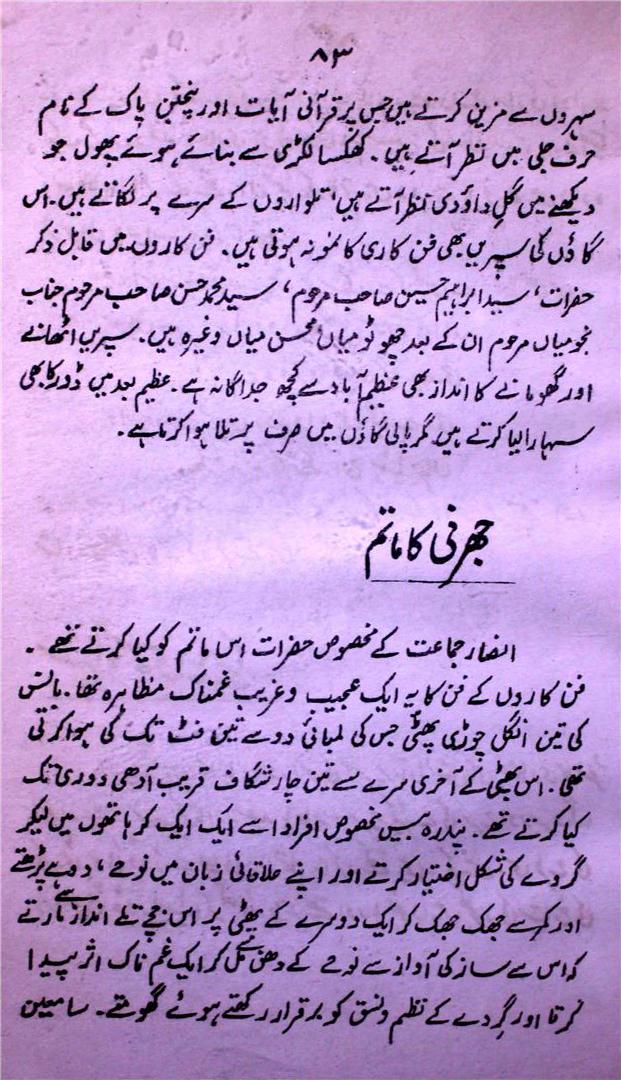 ۸۳
سہروں سے مزین کرتے ہیں جس پر قرآنی آیات اور پنجتن پاک کے نام
حرف جلی میں نظر آتے ہیں۔ کھکسا لکڑی سے بنائے ہوئے پھول جو
دیکھنے میں گل داؤدی نظر آتے ہیں، تلواروں کے سرے پر لگاتے ہیں۔ اس
گاؤں کی سپریں بھی فن کاری کا نمونہ ہوتی ہیں۔ فن کاروں میں قابل ذکر
حضرات، سید ابراہیم حسین صاحب مرحوم، سید محمد حسن صاحب مرحوم جناب
نجو میاں مرحوم ان کے بعد چھوٹو میاں، محسن میاں وغیرہ ہیں۔ سپریں اٹھانے
اور گھومانے کا انداز بھی عظیم آباد سے کچھ جداگانہ ہے۔ عظیم بعد میں ڈور کا بھی
سہارا لیا کرتے ہیں مگر پالی گاؤں میں صرف پر تلا ہوا کرتا ہے۔
جھرنی کا ماتم
انصار جماعت کے مخصوص حضرات اس ماتم کو کیا کرتے تھے۔
فن کاروں کے فن کا یہ ایک عجیب و غریب غمناک مظاہرہ تھا۔ بانس
کی تین انگل چوڑی پھٹی جس کی لمبائی دو سے تین فٹ تک کی ہوا کرتی
تھی۔ اس پھٹی کے آخری سرے سے تین چار شگاف قریب آدھی دوری تک
کیا کرتے تھے۔ پندرہ بیس مخصوص افراد اسے ایک ایک کر ہاتھوں میں لیکر
گردے کی شکل اختیار کرتے اور اپنے علاقائی زبان میں نوحے، دوہے پڑھتے
اور کمر سے جھک جھک کر ایک دوسرے کے پھٹی پر اس جچے تلے انداز سے مارتے
کہ اس سے ساز کی آواز سے نوحے کے دھن سے مل کر ایک غم ناک اثر پیدا
کرتا اور گردے کے نظم و نسق کو برقرار رکھتے ہوئے گھومتے۔ سامعین